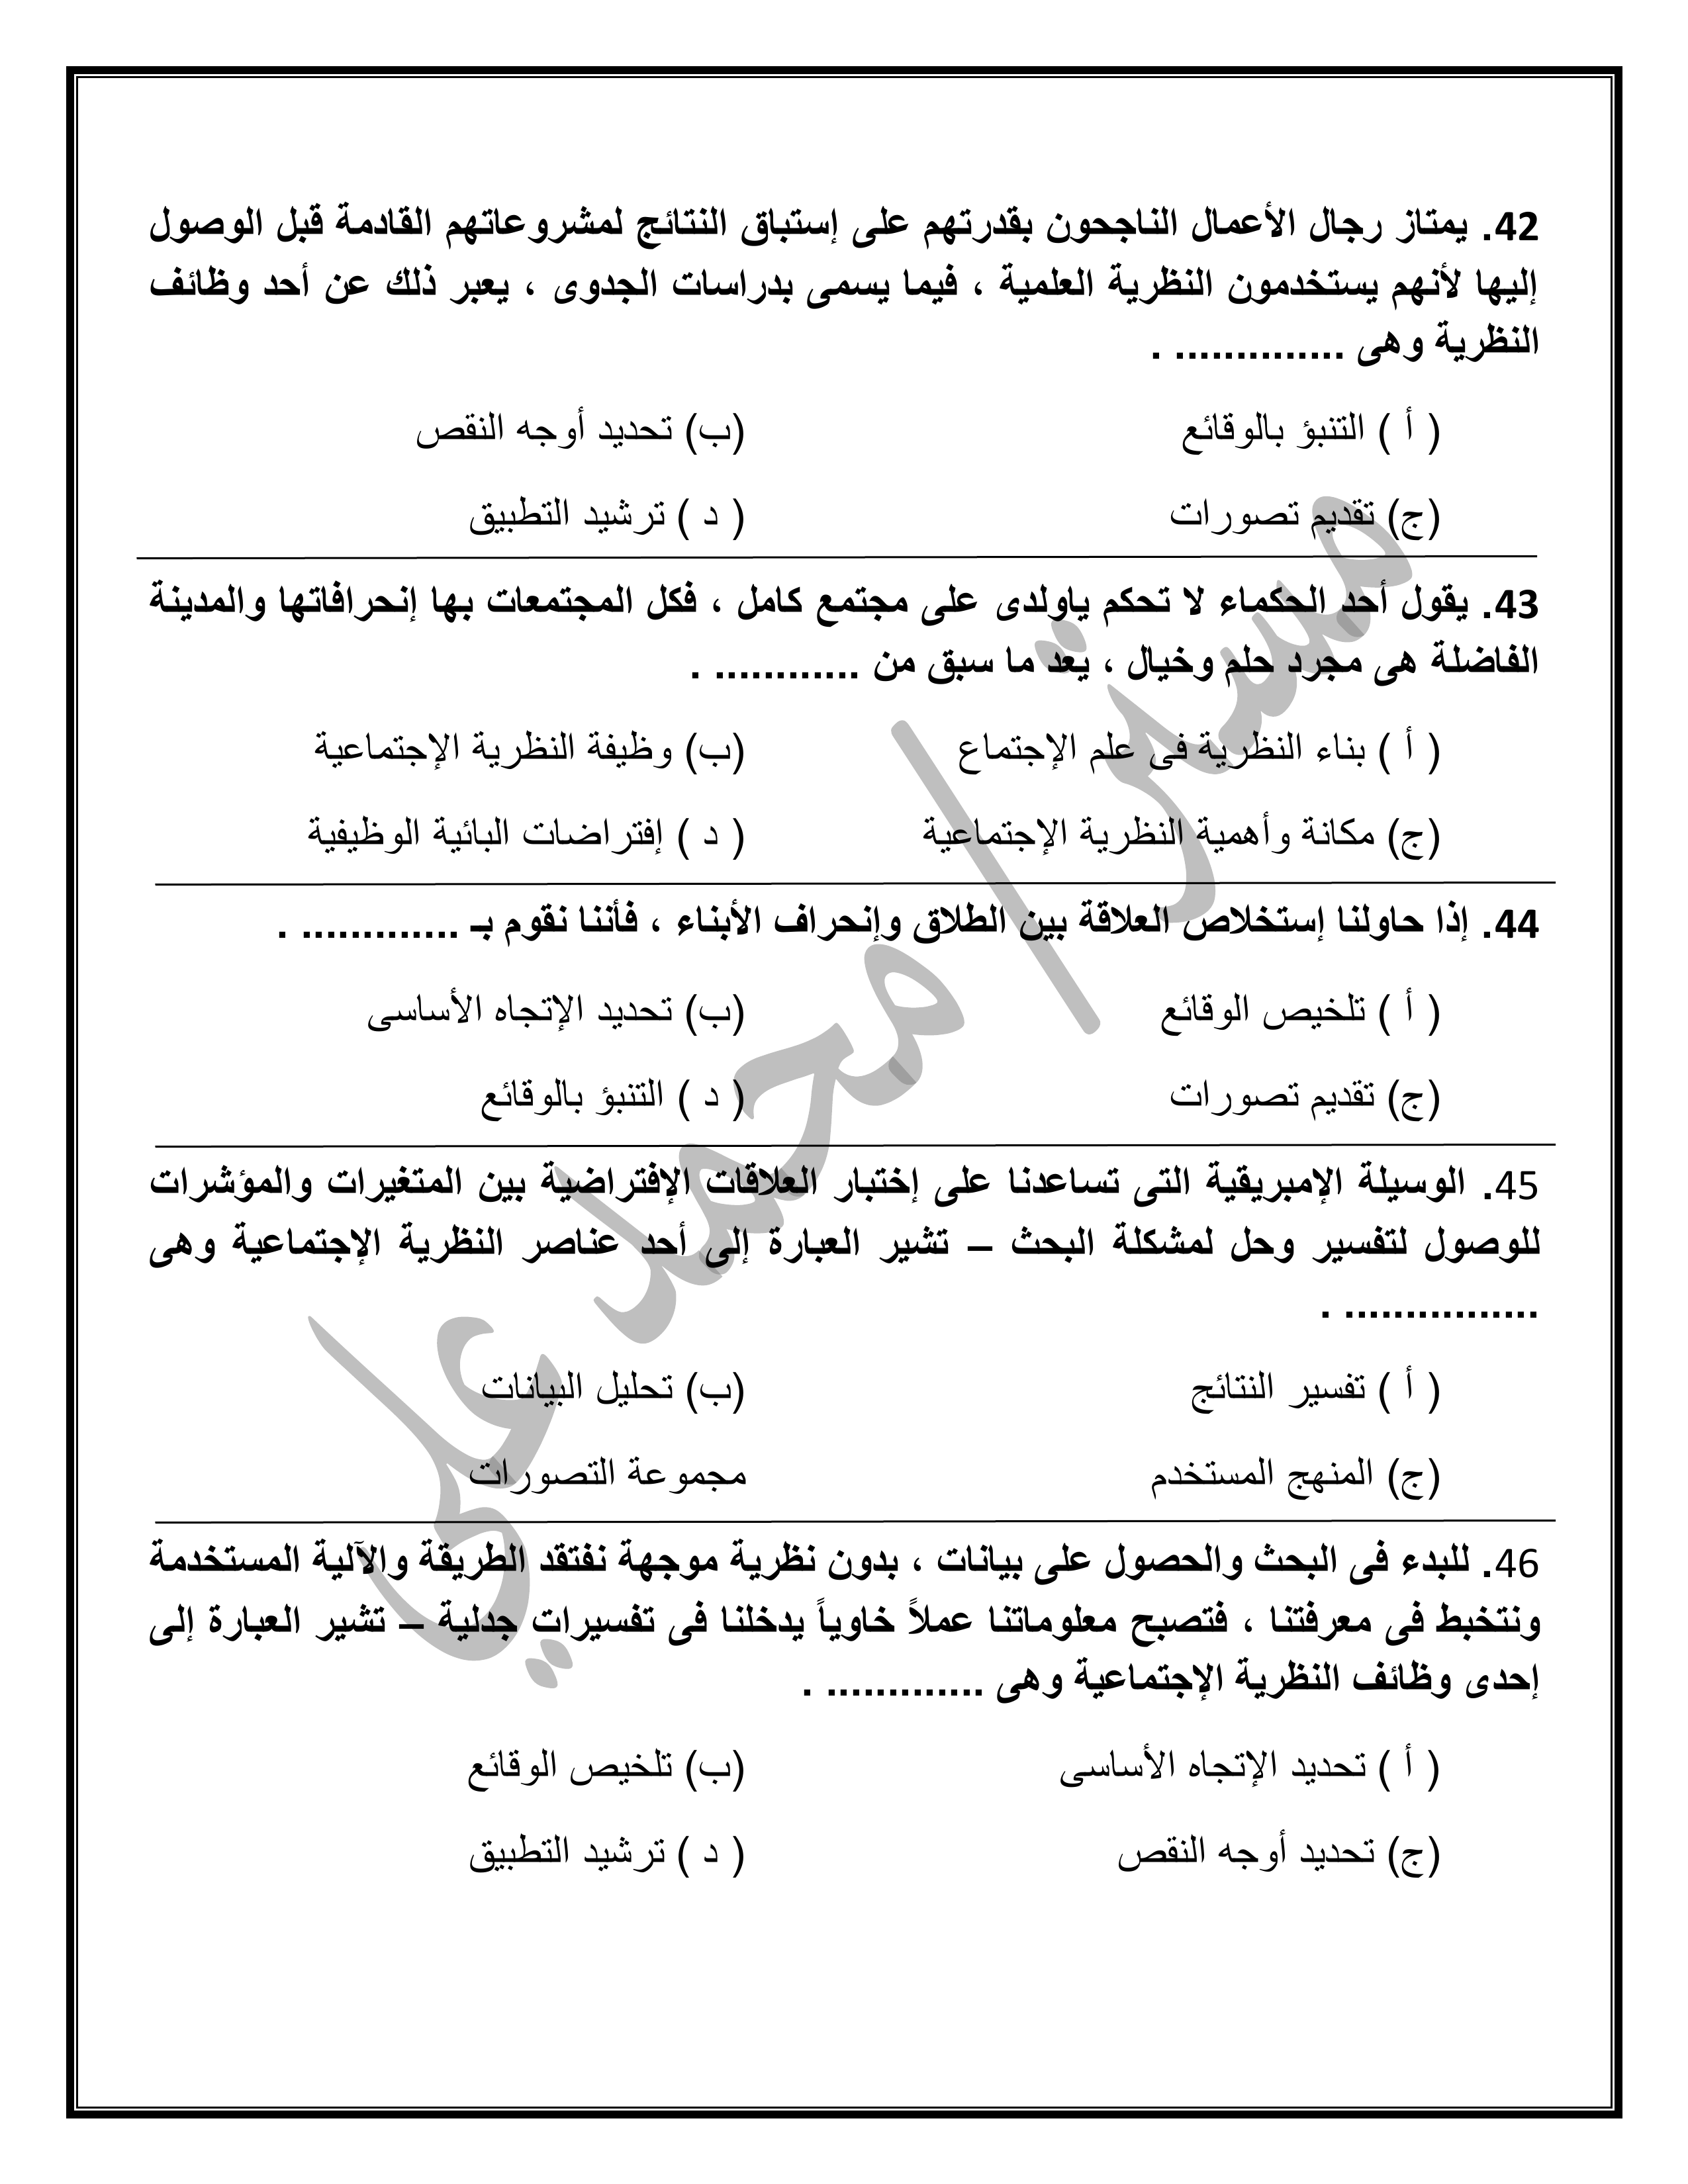 42. يمتاز رجال الأعمال الناجحون بقدرتهم على إستباق النتائج لمشروعاتهم القادمة قبل الوصول
إليها لأنهم يستخدمون النظرية العلمية ، فيما يسمى بدراسات الجدوى ، يعبر ذلك عن أحد وظائف
النظرية وهى .............. .
( أ ) التنبؤ بالوقائع (ب) تحديد أوجه النقص
(ج) تقديم تصورات ( د ) ترشيد التطبيق
43. يقول أحد الحكماء لا تحكم ياولدى على مجتمع كامل ، فكل المجتمعات بها إنحرافاتها والمدينة
الفاضلة هى مجرد حلم وخيال ، يعد ما سبق من ............ .
( أ ) بناء النظرية فى علم الإجتماع (ب) وظيفة النظرية الإجتماعية
(ج) مكانة وأهمية النظرية الإجتماعية ( د ) إفتراضات البائية الوظيفية
44. إذا حاولنا إستخلاص العلاقة بين الطلاق وإنحراف الأبناء ، فأننا نقوم بـ ............. .
( أ ) تلخيص الوقائع (ب) تحديد الإتجاه الأساسى
(ج) تقديم تصورات ( د ) التنبؤ بالوقائع
45. الوسيلة الإمبريقية التى تساعدنا على إختبار العلاقات الإفتراضية بين المتغيرات والمؤشرات
للوصول لتفسير وحل لمشكلة البحث – تشير العبارة إلى أحد عناصر النظرية الإجتماعية وهى
................ .
( أ ) تفسير النتائج (ب) تحليل البيانات
(ج) المنهج المستخدم مجموعة التصورات
46. للبدء فى البحث والحصول على بيانات ، بدون نظرية موجهة نفتقد الطريقة والآلية المستخدمة
ونتخبط فى معرفتنا ، فتصبح معلوماتنا عملاً خاوياً يدخلنا فى تفسيرات جدلية – تشير العبارة إلى
إحدى وظائف النظرية الإجتماعية وهى ............. .
( أ ) تحديد الإتجاه الأساسى (ب) تلخيص الوقائع
(ج) تحديد أوجه النقص ( د ) ترشيد التطبيق
مستر/محمد علي